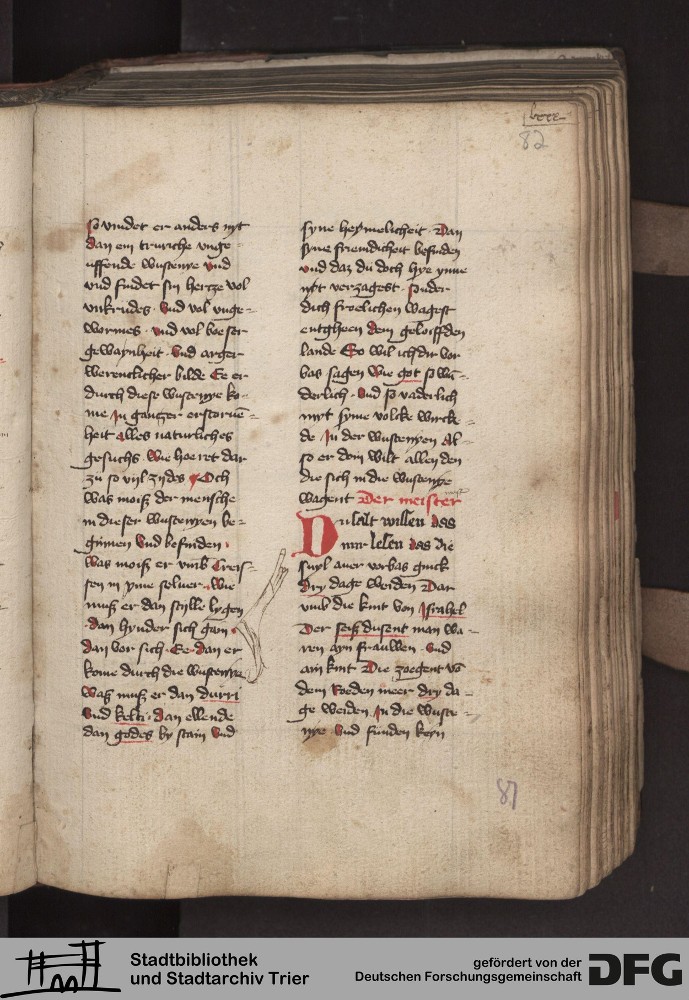 lxxx
82
so vindet er anders nyt
dan ein truriche unge-
uffende wustenye und
und findet sin hertze vol
unkrudes. Und vol unge-
wormes. und vol boeser
gewaynheit. Und arger
werentlicher bilde Ee er
durch diese wustenye ko-
me In gantzer erstoruē-
heit alles naturliches
gesuchs. Wie hoeret dar
zu so vyl zydes Och
was moiß der mensche
in dieser wustenyen be-
gynnen Und befinden.
Was moiß er umb
sen in yme seluer. Wie
muß er dan stylle lygen
dan hynder sich gain
dan vor sich. Ee dan er
kome durch die wustenye
Was muß er dan durri
Und kelti. dan ellende
dan godes by stain Und
syne heymelicheit. Dan
syne fremdicheit befinden
und daz du doch hye ynne
nyt verzagest. Sunder
dich froelichen wagest
entgheen dem geloiffden
lande So wil ich dir vor
bas sagen Wie got so wū-
derlich. Und so vaderlich
myt syme volcke wirck-
de In der wustenyen Al-
so er dem wilt allen den
die sich in die wustenye
wagent Der meister
Du salt willen das
man lesen das die
suyl aver vorbas ginck
Dry dage weiden Dar
umb die kint von Israhel
Der seiß dusent man wa-
ren ayn frauwen. Und
ain kint Die zoegent vō
dem Roeden meer dry da-
ge weiden. In die wuste-
nye Und funden keyn
81
Stadtbibliothek
und Stadtarchiv Trier
gefördert von der
Deutschen Forschungsgemeinschaft
DFG